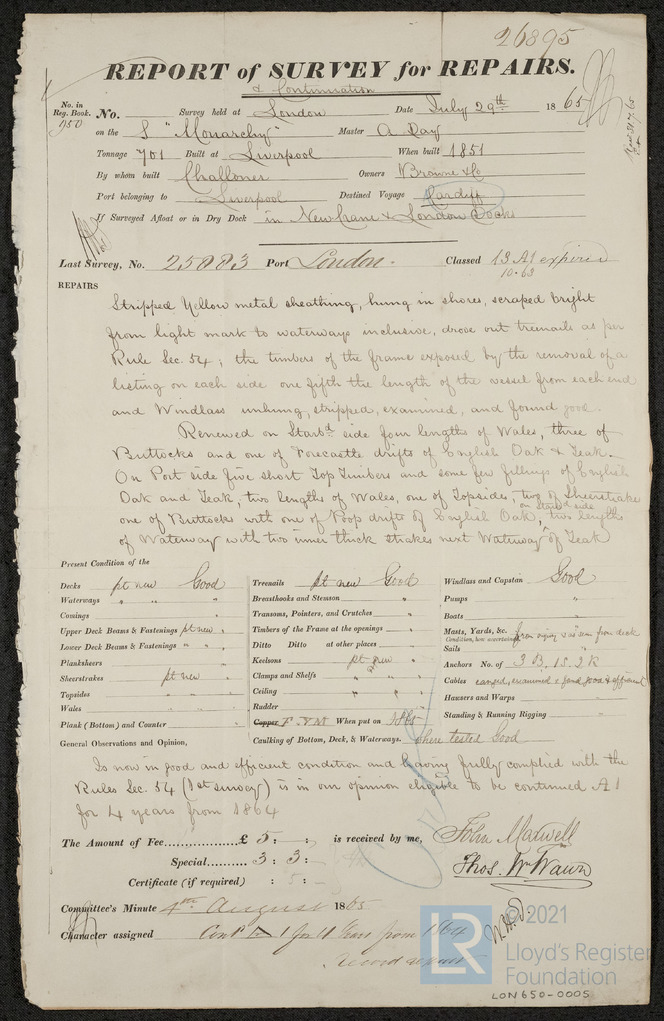 26895
REPORT of SURVEY for REPAIRS.
& Continuation
No. in Reg. Book. No. Survey held at London Date July 29th 1865
950 on the S "Monarchy" Master A Day
Tonnage 701 Built at Liverpool When built 1851
By whom built Challoner Owners Browne & Co
Port belonging to Liverpool Destined Voyage Cardiff
If Surveyed Afloat or in Dry Dock in New Crane & London Docks
Last Survey, No. 25883 Port London. Classed 13 A1 expired
10.63
REPAIRS
Stripped Yellow metal sheathing, hung in shores, scraped bright
from light mark to waterways inclusive, drove out treenails as per
Rule Sec. 54; the timbers of the frame exposed by the removal of a
listing on each side one fifth the length of the vessel from each end
and Windlass unhung, stripped, examined, and found good.
Renewed on Starbd side four lengths of Wales, three of
Buttocks and one of Forecastle drifts of English Oak & Teak.
On Port side five short Top Timbers and some few fillings of English
Oak and Teak, two lengths of Wales, one of Topsides, two of Sheerstrake
one of Buttocks with one of Poop drifts of English Oak, on Starbd side two lengths
of Waterway with two inner thick strakes next Waterway of Teak
Present Condition of the
Decks pt new Good
Waterways " " "
Comings "
Upper Deck Beams & Fastenings pt new "
Lower Deck Beams & Fastenings " " "
Planksheers "
Sheerstrakes pt new "
Topsides " " "
Wales " " "
Plank (Bottom) and Counter "
Treenails pt new Good
Breasthooks and Stemson "
Transoms, Pointers, and Crutches "
Timbers of the Frame at the openings "
Ditto Ditto at other places "
Keelsons pt new "
Clamps and Shelfs " "
Ceiling " "
Rudder "
Copper F.Y.M When put on 1865
Caulking of Bottom, Deck, & Waterways. where tested Good
Windlass and Capstan Good
Pumps "
Boats "
Masts, Yards, &c. from deck
Condition, how ascertained
Sails "
Anchors No. of 3 B, 1 S. 2 K
Cables ranged, examined & found good & efficient
Hawsers and Warps "
Standing & Running Rigging "
General Observations and Opinion,
Is now in good and efficient condition and having fully complied with the
Rules Sec. 54 (1st survey) is in our opinion eligible to be continued A1
for 4 years from 1864
The Amount of Fee £ 5 : - : is received by me, John Maxwell
Special 3 : 3 : Thos. W Wawn
Certificate (if required) : 5 : -
Committee's Minute 4th August 1865
Character assigned Contd A 1 for 4 Years from 1864
© 2021
LR Lloyd's Register
Foundation
LON650-0005